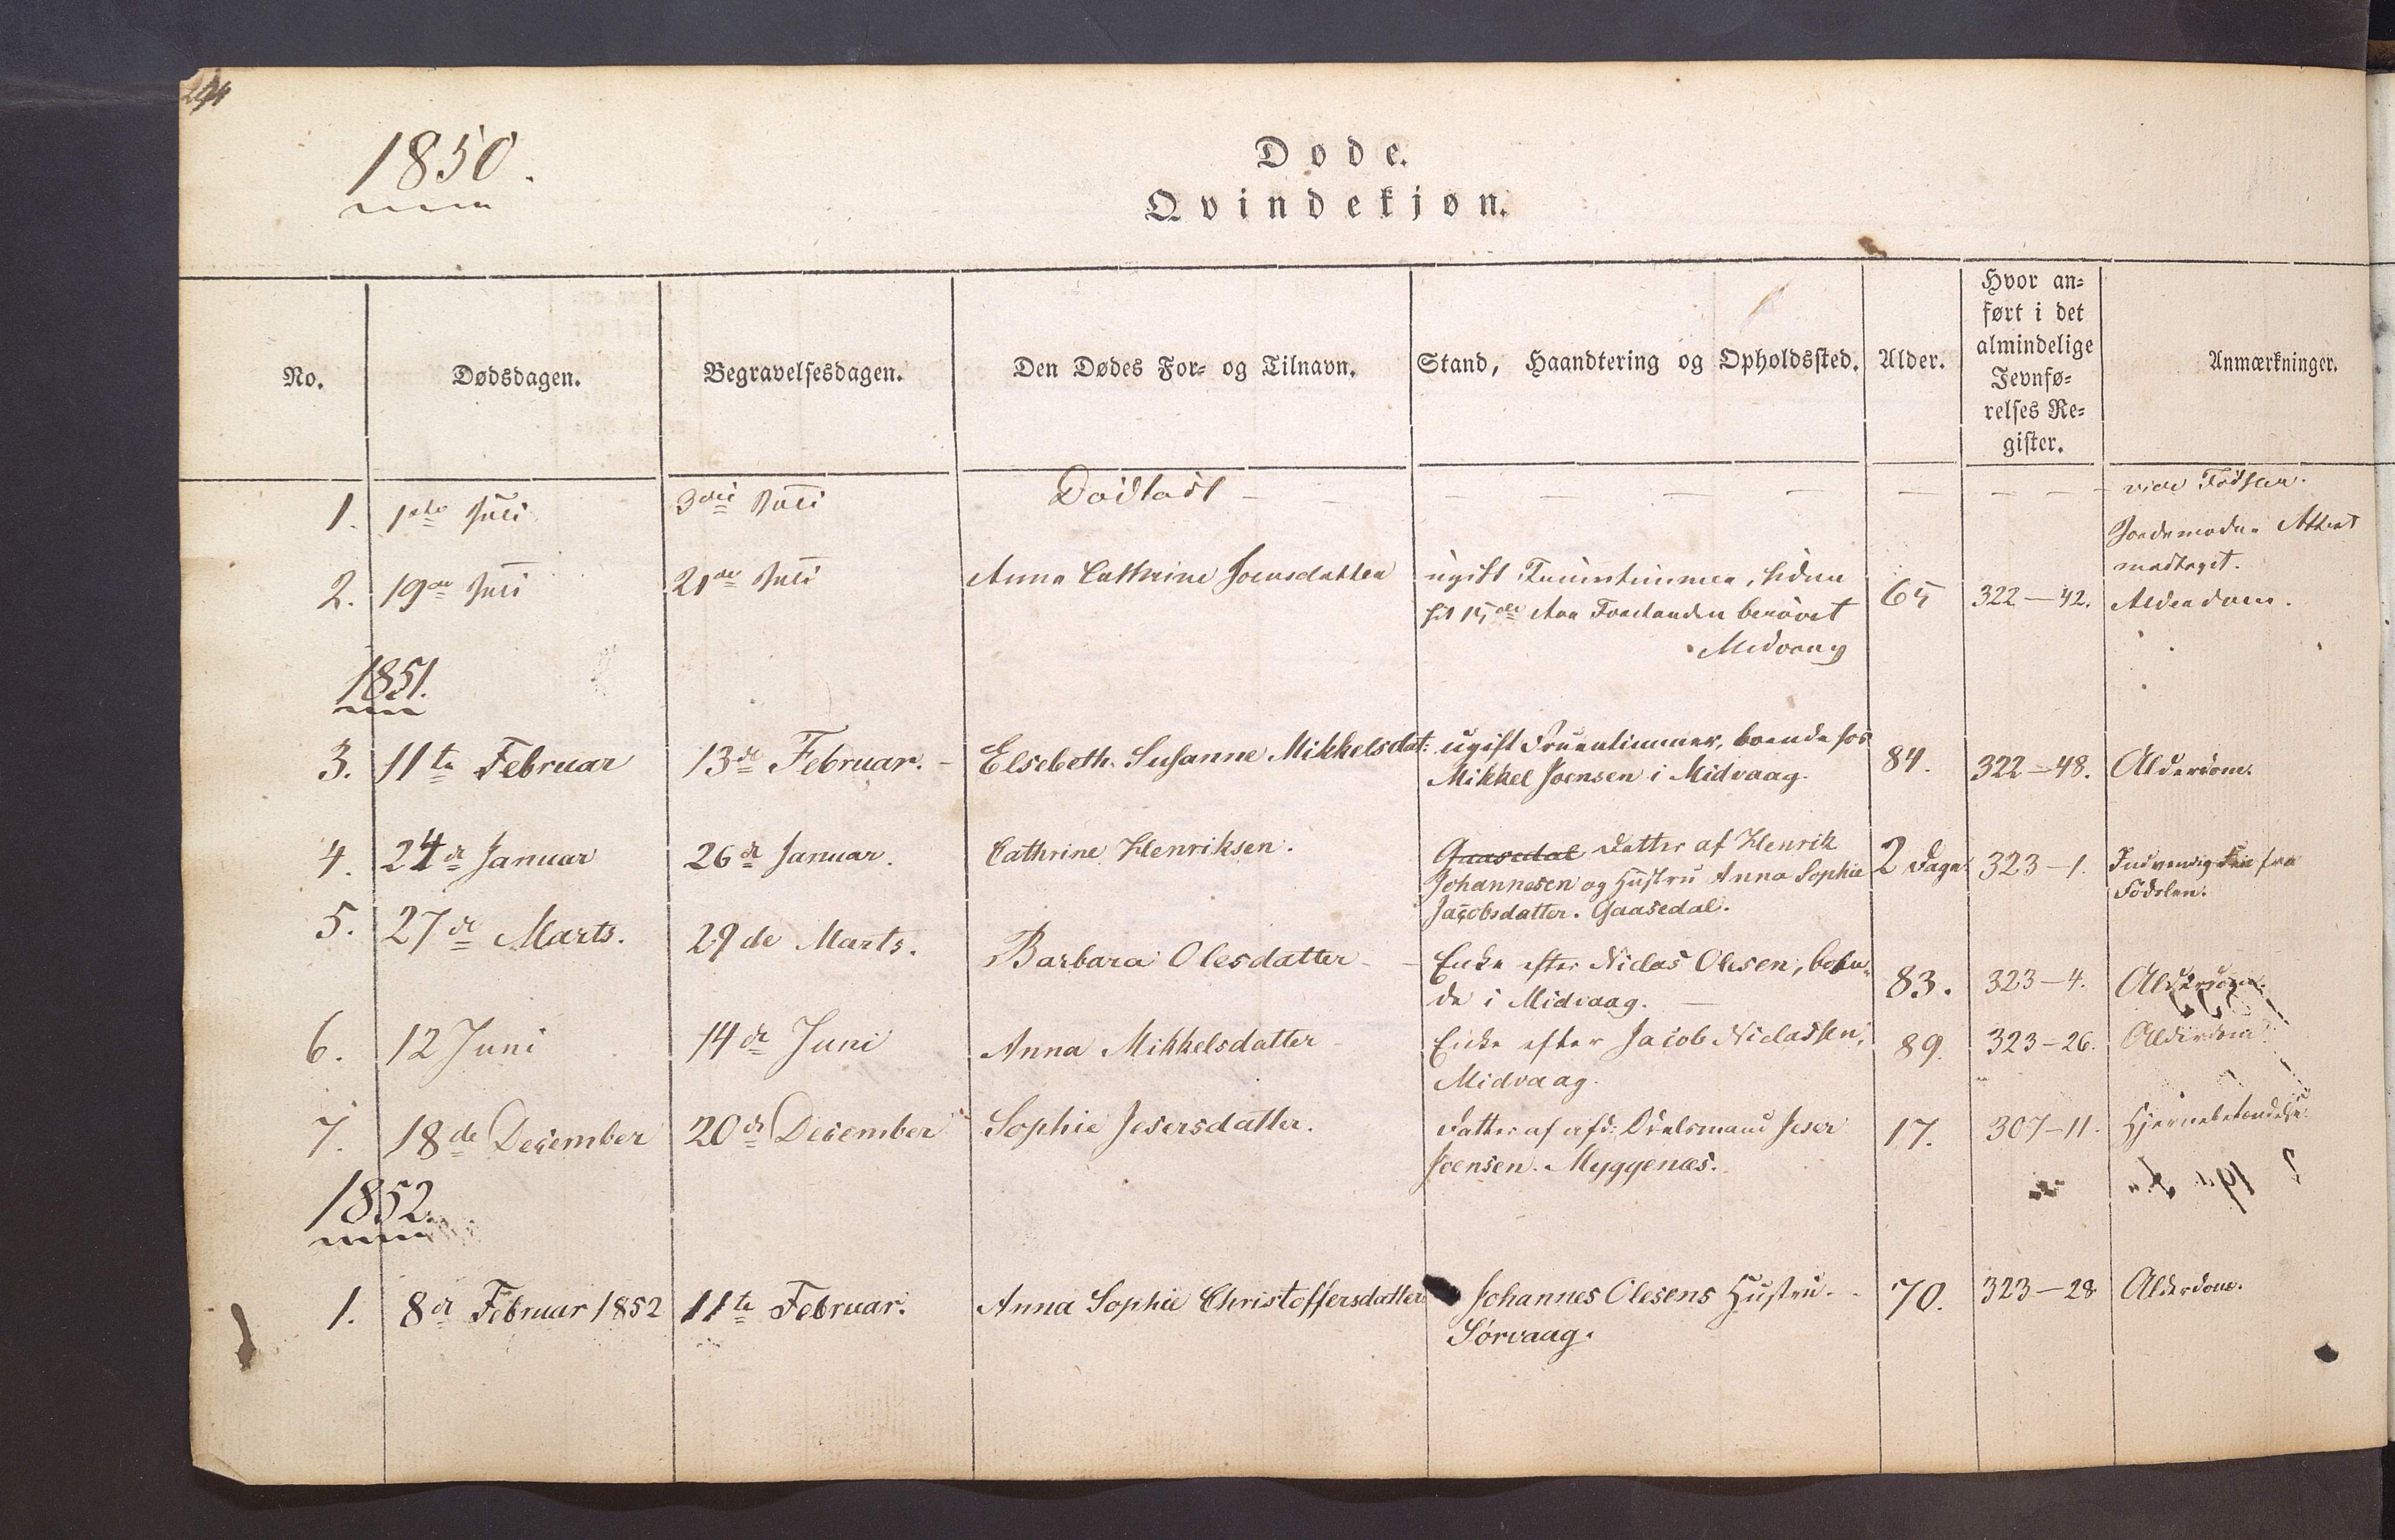 294
1850.
Døde.
Qvindekjøn.
No. Dødsdagen. Begravelsesdagen. Den Dødes For- og Tilnavn. Stand, Haandtering og Opholdssted. Alder. Hvor an-
ført i det
almindelige
Jevnfø-
relses Re-
gister. Anmærkninger.
1. 1ste Juli 3die Juli Dødfødt — — — — — — — — — vide Fødslen.
Jordemoder Attest
modtaget.
2. 19de Juli 21de Juli Anna Cathrine Joensdatter ugift Fruentimmer, siden 65 322—42. Alderdom.
sit 15de Aar Forstanden berøvet
Midvaag
1851.
3. 11te Februar 13de Februar. - Elsebeth Susanne Mikkelsdat: ugift Fruentimmer, boende hos 84. 322—48. Alderdom.
Mikkel Joensen i Midvaag.
4. 24de Januar 26de Januar. Cathrine Henriksen. Gaasedal Datter af Henrik 2 Dage. 323—1. Indvendig fra
Johannesen og Hustru Anna Sophie Fødslen.
Jacobsdatter. Gaasedal.
5. 27de Marts. 29de Marts. Barbara Olesdatter - Enke efter Niclas Olesen, boen- 83. 323—4. Alderdom.
de i Midvaag. —
6. 12 Juni 14de Juni Anna Mikkelsdatter - Enke efter Jacob Niclassen, 89. 323—26. Alderdom.
Midvaag.
7. 18de December 20de December Sophie Jesersdatter. Datter af afd: Odelsmand Jeser 17. 307—11. Hjernebetændelse.
Joensen. Myggenæs.
1852.
1. 8de Februar 1852 11te Februar. Anna Sophie Christoffersdatter Johannes Olesens Hustru. - 70. 323—28 Alderdom.
Sørvaag.